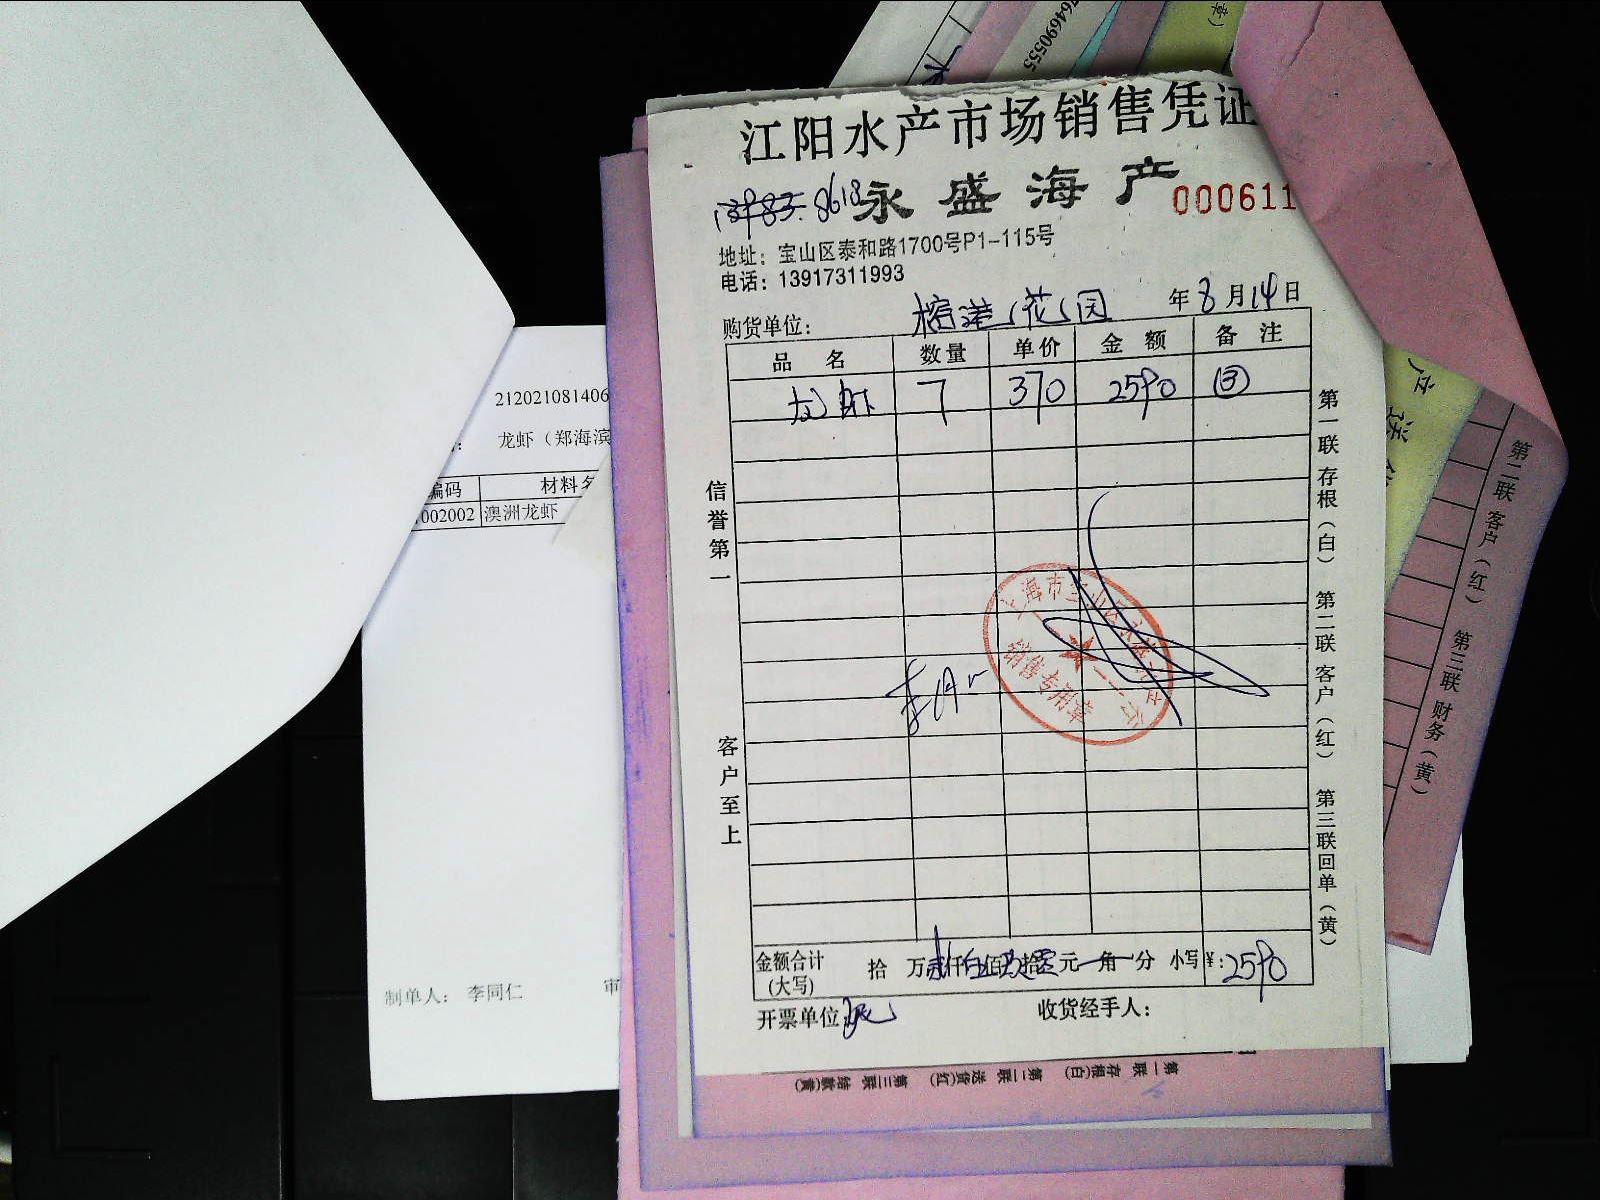 江阳水产市场销售凭证
8618
永盛海产
000611
地址：宝山区泰和路1700号P1-115号
电话：13917311993
购货单位：榕港花园 年8月14日
品名 数量 单价 金额 备注
龙虾 7 370 2590 ③
信誉第一
客户至上
第一联存根（白） 第二联客户（红） 第三联回单（黄）
销售专用章
金额合计（大写） 拾 万 贰仟 伍佰 玖拾 零元 角 分 小写¥：2590
开票单位：
收货经手人：
212021081406
龙虾（郑海滨
编码 材料名
002002 澳洲龙虾
制单人： 李同仁 审
764690555
章）
第二联 客户（红） 第三联 财务（黄）
第一联 存根(白) 第二联 送货(红) 第三联 结款(黄)